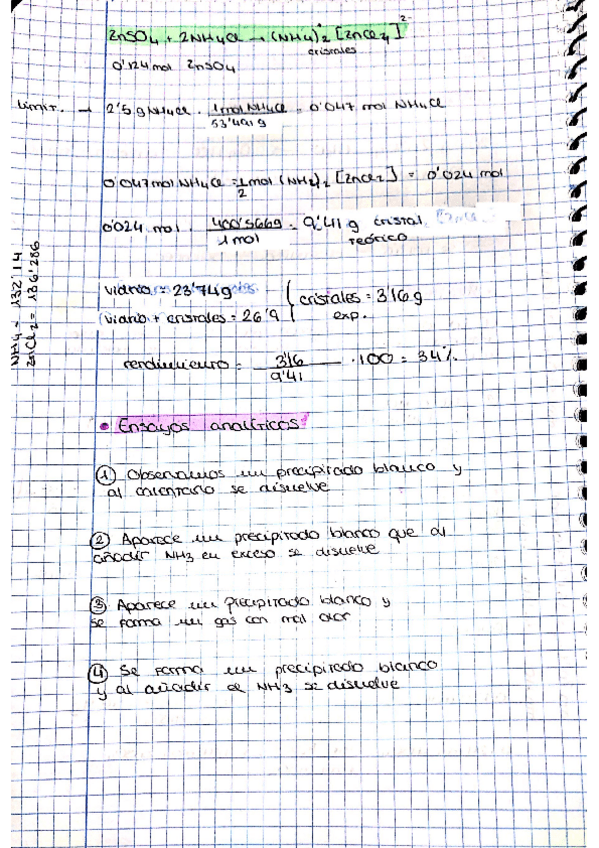 ZnSO4 + 2NH4Cl → (NH4)2+ [ZnCl4]2-
cristales
0'124 mol ZnSO4
Limit. → 2'5 g NH4Cl · 1mol NH4Cl / 53'491 g = 0'047 mol NH4Cl
0'047 mol NH4Cl = 1/2 mol (NH4)2 [ZnCl2] = 0'024 mol
0'024 mol · 400'5669 / 1 mol = 9'41 g cristal
teórico
vidrio = 23'74g
vidrio + cristales = 26'9
cristales = 3'16 g
exp.
NH4 = 132'14
ZnCl2 = 136'286
rendimiento = 3'16 / 9'41 · 100 = 34%
• Ensayos analíticos
① Observamos un precipitado blanco y
al calentarlo se disuelve
② Aparece un precipitado blanco que al
añadir NH3 en exceso se disuelve
③ Aparece un precipitado blanco y
se forma un gas con mal olor
④ Se forma un precipitado blanco
y al añadir el NH3 se disuelve